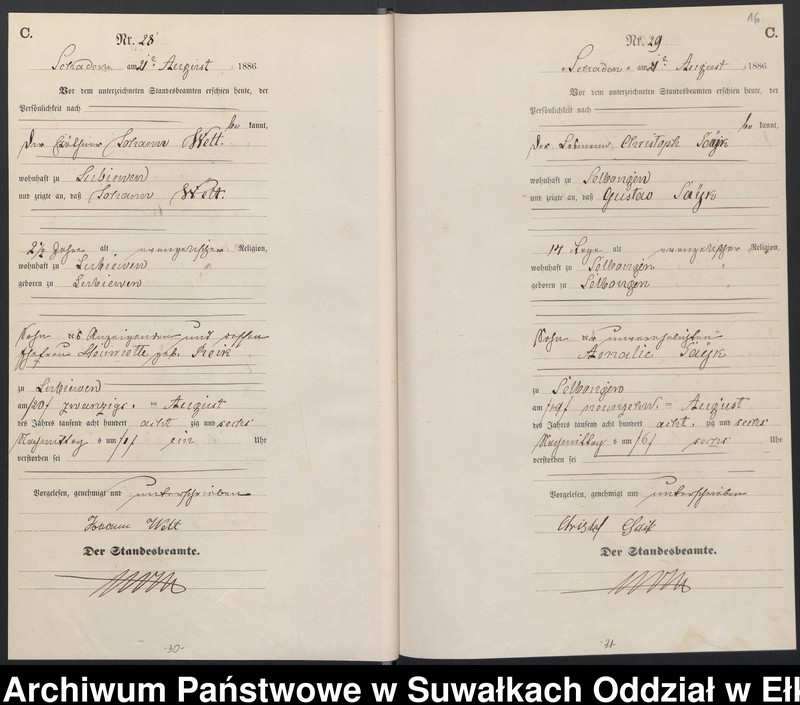 C.
Nr. 28
am 21 August 1886
Vor dem unterzeichneten Standesbeamten erschien heute, der
Persönlichkeit nach
be kannt,
der Johann Welt.
wohnhaft zu Lubiewen
und zeigte an, daß Johann Welt.
2 1/2 Jahre alt evangelischer Religion,
wohnhaft zu Lubiewen
geboren zu Lubiewen
Sohn des Anzeigenden und dessen
Ehefrau Henriette geb.
zu Lubiewen
am /20/ zwanzigs. = August
des Jahres tausend acht hundert acht zig und sechs
Nachmittag s um /1/ ein Uhr
verstorben sei
Vorgelesen, genehmigt und unterschrieben
Johann Welt
Der Standesbeamte.
-30-
16
C.
Nr. 29
am 21 August 1886
Vor dem unterzeichneten Standesbeamten erschien heute, der
Persönlichkeit nach
be kannt,
der Christoph
wohnhaft zu Selbongen
und zeigte an, daß Gustav
14 Tage alt evangelischer Religion,
wohnhaft zu Selbongen
geboren zu Selbongen
Sohn der unverehelichten
Amalie
zu Selbongen
am /19/ neunzehn. = August
des Jahres tausend acht hundert acht. zig und sechs
Nachmittag s um /6/ sechs Uhr
verstorben sei
Vorgelesen, genehmigt und unterschrieben
Christof
Der Standesbeamte.
-31-
Archiwum Państwowe w Suwałkach Oddział w Ełk